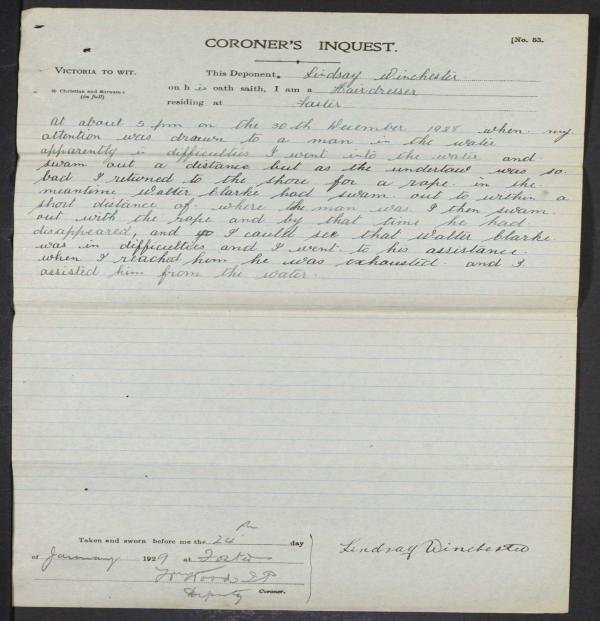 CORONER'S INQUEST.
[No. 53.
VICTORIA TO WIT.
This Deponent, Lindsay Winchester
Christian and Surname
(in full)
on h is oath saith, I am a Hairdresser
residing at Foster
At about 5 pm on the 30th December 1928 when my
attention was drawn to a man in the water
apparently in difficulties I went into the water and
swam out a distance but as the undertow was so
bad I returned to the shore for a rope. in the
meantime Walter Clarke had swam out to within a
short distance of where the man was. I then swam
out with the rope and by that time he had
disappeared, and I could see that Walter Clarke
was in difficulties and I went to his assistance.
when I reached him he was exhausted and I
assisted him from the water.
Taken and sworn before me the 24 th day
of January 1929 at Foster
Wood JP
Deputy Coroner.
Lindsay Winchester